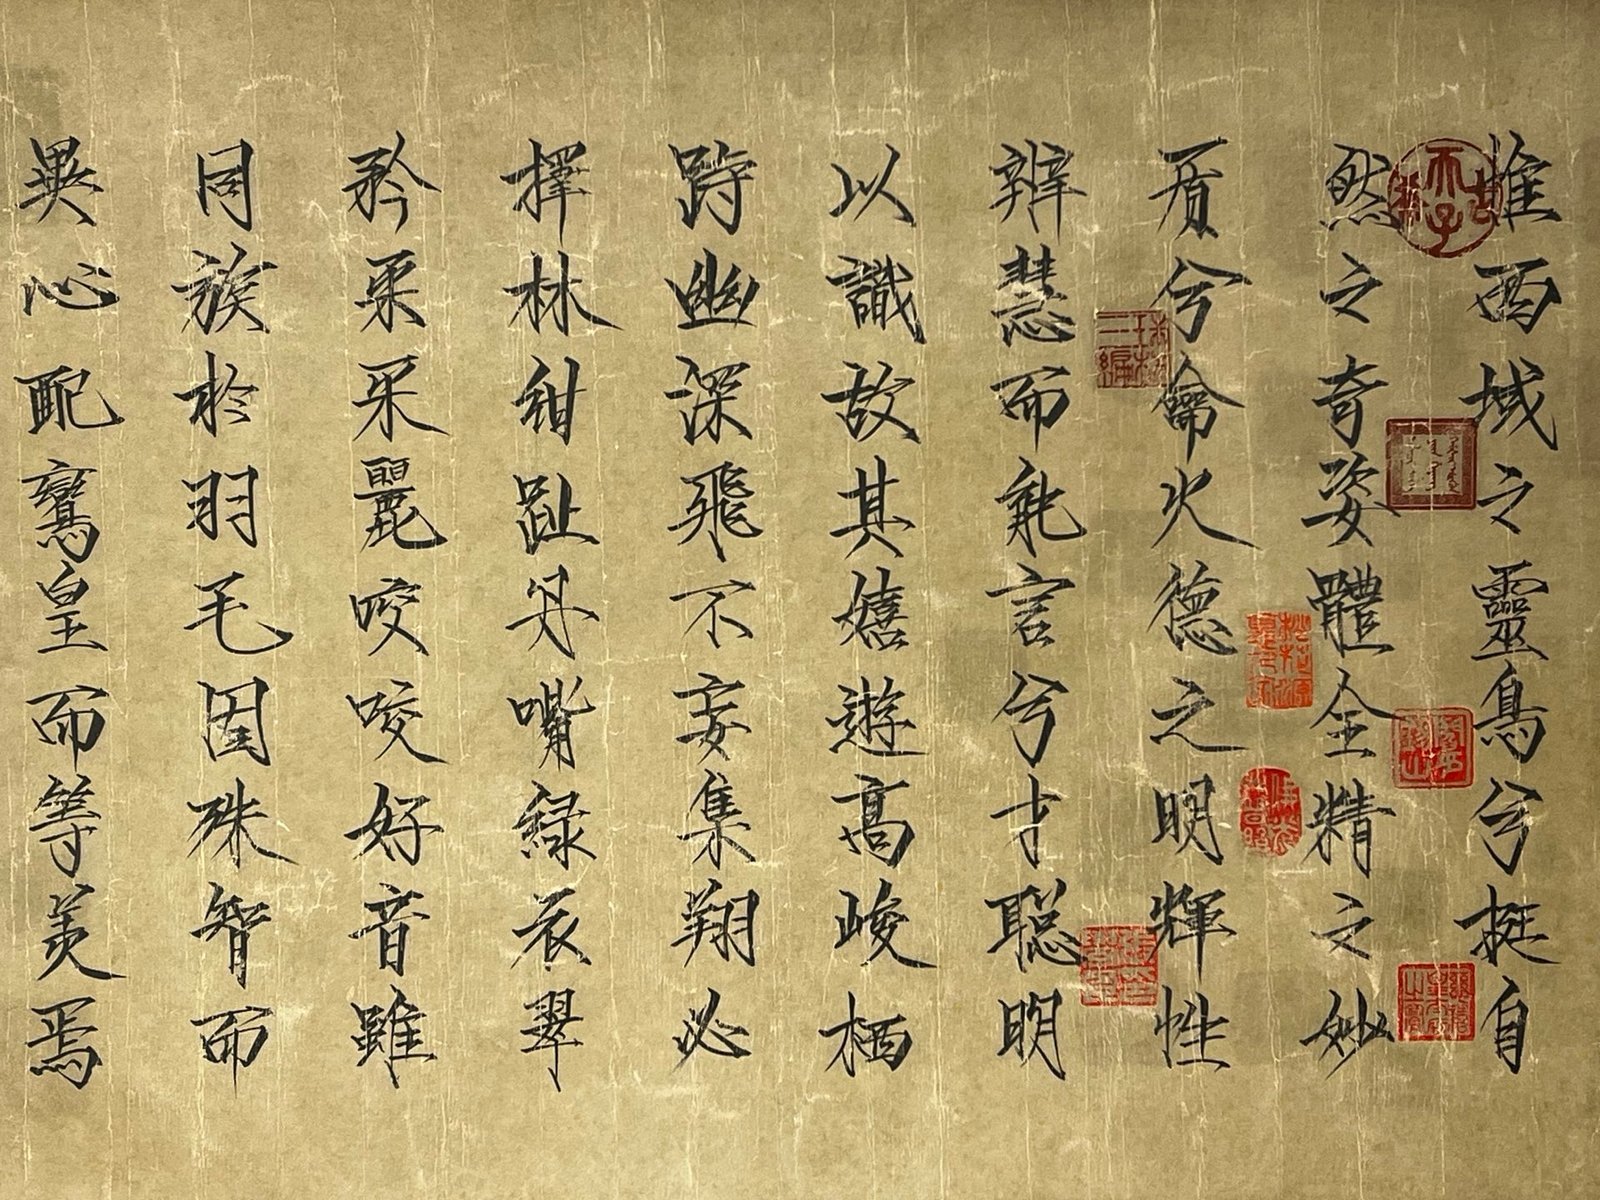 惟西域之靈鳥兮挺自
然之奇姿體全精之妙
质兮龠火德之明輝性
辨慧而能言兮才聰明
以識故其嬉遊高峻栖
跱幽深飛不妄集翔必
擇林紺趾丹嘴緑衣翠
矜采采麗咬咬好音雖
同族於羽毛固殊智而
異心配鸞皇而等美焉
古稀天子